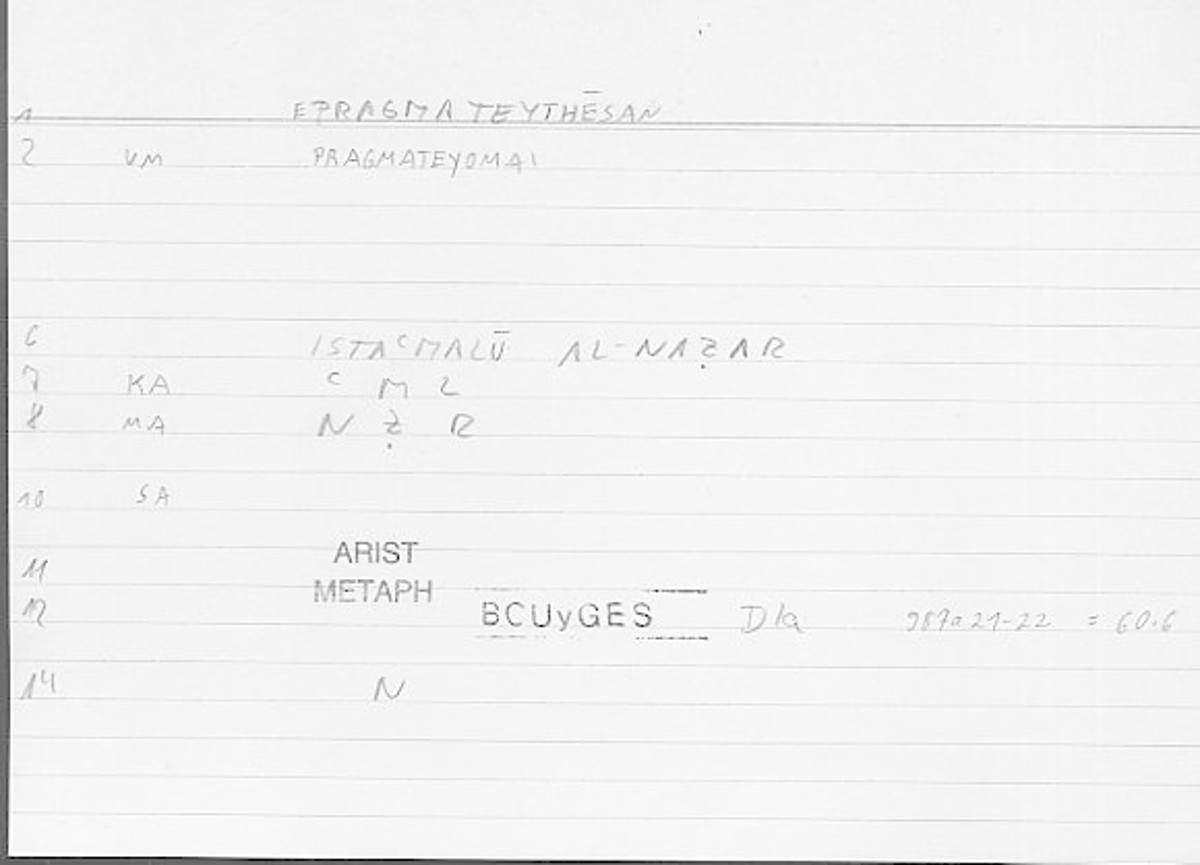 1 EPRAGMATEYTHĒSAN
2 VM PRAGMATEYOMAI
6 ISTAʿMALŪ AL-NAẒAR
7 KA ʿ M L
8 MA N Ẓ R
10 SA
ARIST
11
METAPH
12 BCUyGES D1a 987a21-22 = 60.6
14 N